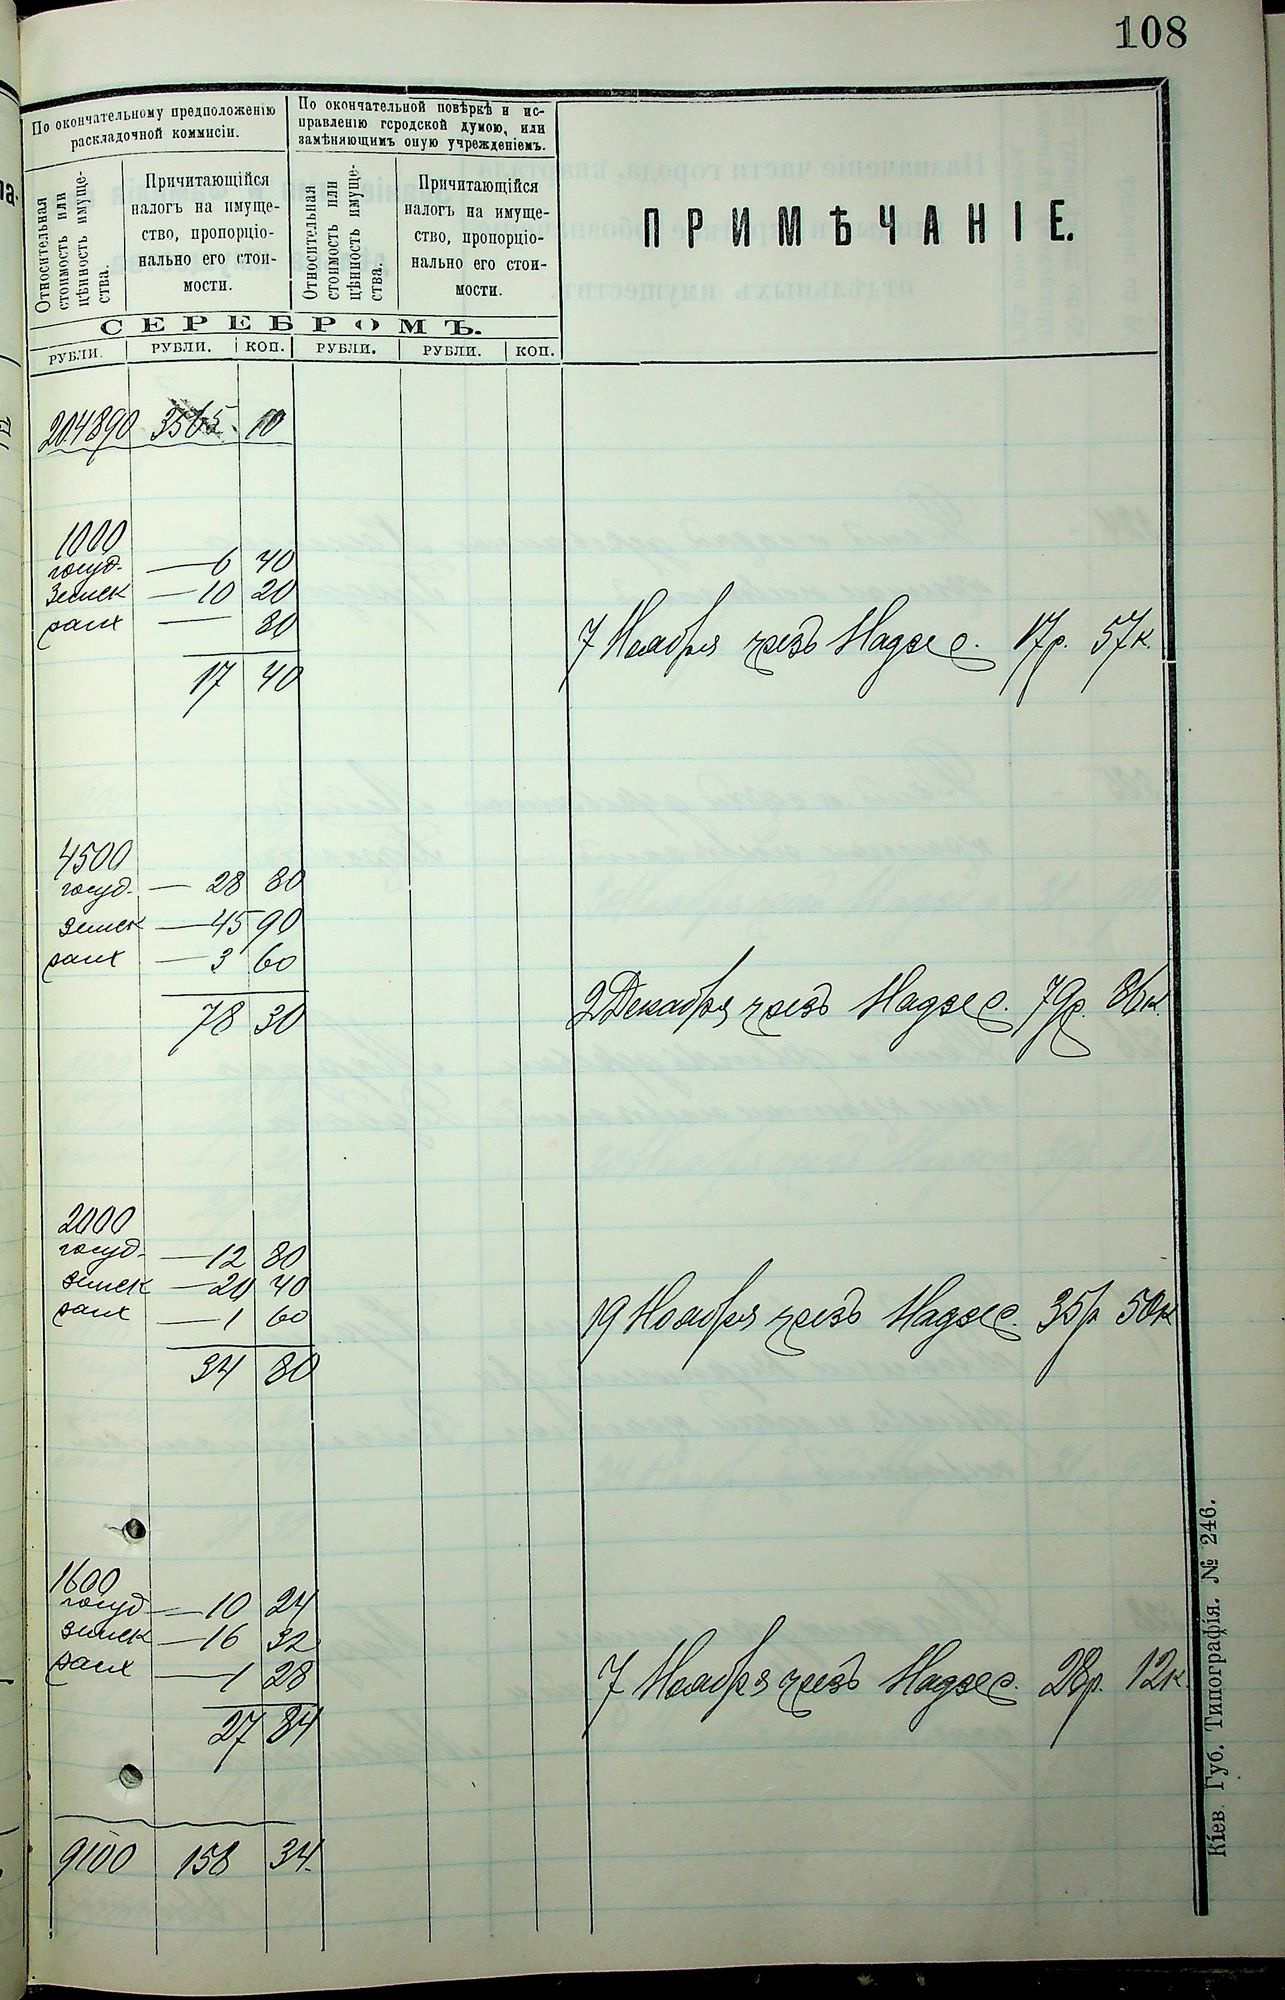 108
По окончательному предположенію
раскладочной коммисіи.
По окончательной повѣркѣ и ис-
правленію городской думою, или
замѣняющимъ оную учрежденіемъ.
ПРИМѢЧАНІЕ.
Относительная
стоимость или
цѣнность имуще-
ства.
Причитающійся
налогъ на имуще-
ство, пропорціо-
нально его стои-
мости.
Относительная
стоимость или
цѣнность имуще-
ства.
Причитающійся
налогъ на имуще-
ство, пропорціо-
нально его стои-
мости.
СЕРЕБРОМЪ.
РУБЛИ. РУБЛИ. КОП. РУБЛИ. РУБЛИ. КОП.
204890 3565 10
1000
госуд. — 6 40
Земск — 10 20
— 80
17 40
7 Ноября чрезъ 17р. 57к.
4500
госуд. — 28 80
земск — 45 90
— 3 60
78 30
2 Декабря чрезъ 79р. 86к.
2000
госуд — 12 80
земск — 20 40
— 1 60
34 80
19 Ноября чрезъ 35р 50к
1600
госуд — 10 24
земск — 16 32
— 1 28
27 84
7 Ноября чрезъ 28р. 12к.
9100 158 34.
Кіев. Губ. Типографія. № 246.